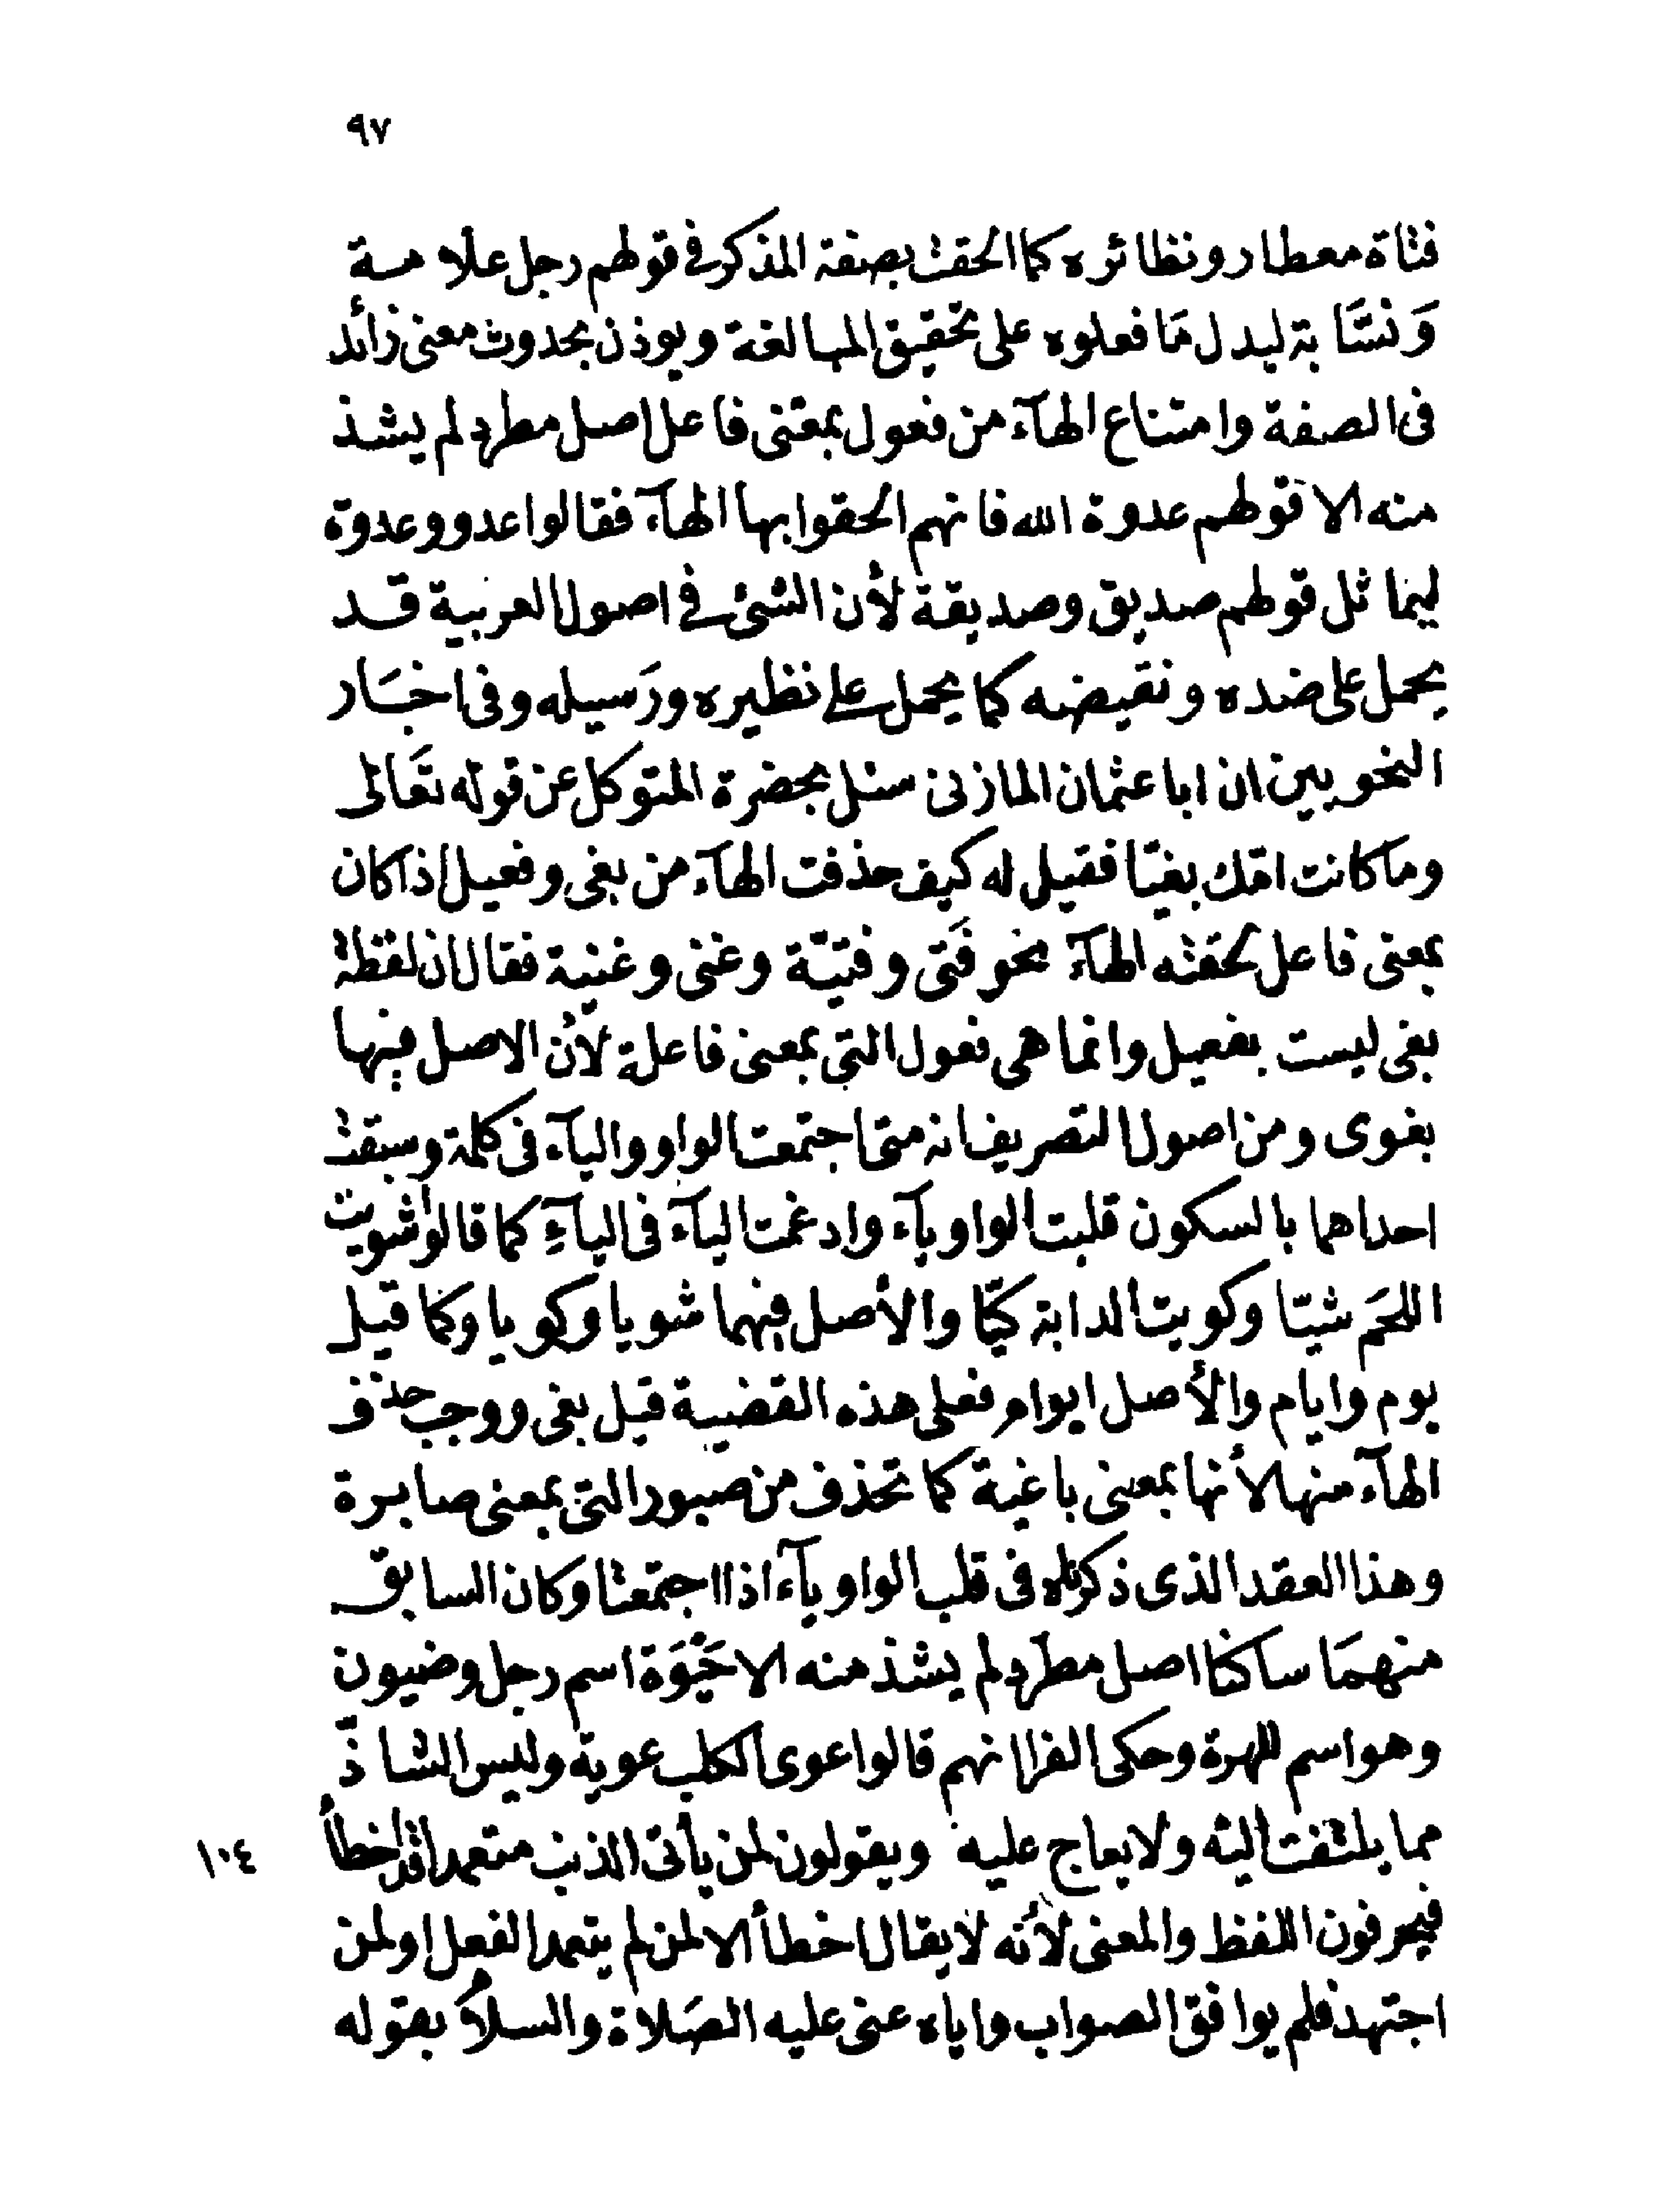 ٩٧
فتاة معطار ونظائره كما الحقت بصفة المذكر فى قولهم رجل علامة
وَنسَّابة ليدل مَا فعلوه على تحقيق المبالغة ويوذن بحدوث معنى زائد
فى الصفة وامتناع الهآء من فعول بمعنى فاعل اصل مطرد لم يشذ
منه الا قولهم عدوة الله فانهم الحقوا بها الهآء فقالوا عدو وعدوة
ليماثل قولهم صديق وصديقة لأن الشئ فى اصول العربية قد
يحمل على ضده ونقيضه كما يحمل على نظيره ورَسيله وفى اخبَار
النحويين ان ابا عثمان المازنى سئل بحضرة المتوكل عن قوله تعَالى
ومآ كانت امّك بغيّا فقيل له كيف حذفت الهآء من بغى وفعيل اذا كان
بمعنى فاعل لحقته الهآء نحو فَتى وفتيّة وغنى وغنية فقال ان لفظة
بغى ليست بفعيل وانما هى فعول التى بمعنى فاعلة لأن الاصل فيها
بغوى ومن اصول التصريف انه متى اجتمعت الواو واليآء فى كلمة وسبقت
احداهما بالسكون قلبت الواو يآء وادغمت اليآء فى اليآءِ كما قالوا شويت
اللحَم شيّا وكويت الدابة كيّا والأصل فيهما شويا وكويا وكما قيل
يوم وايام والأصل ايوام فعلى هذه القضية قيل بغى ووجب حذف
الهآء منها لأنها بمعنى باغية كما تحذف من صبور التى بمعنى صابرة
وهذا العقد الذى ذكرناه فى قلب الواو يآء اذا اجتمعتا وكان السابق
منهمَا ساكنا اصل مطرد لم يشذ منه الا حَيْوَة اسم رجل وضيون
وهو اسم للهرة وحكى الفرا انهم قالوا عوى الكلب عوية وليس الشاذّ
مما يلتفت اليه ولا يعاج عليه ويقولون لمن يأتى الذنب متعمدا قد اخطأ ١٠٤
فيحرفون اللفظ والمعنى لأنّه لا يقال اخطأ الا لمن لم يتعمد الفعل او لمن
اجتهد فلم يوافق الصواب واياه عنى عليه الصَلاة والسلاَم بقوله